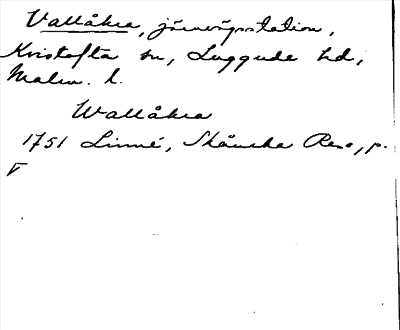 Vallåkra, järnvägsstation,
Kvistofta sn, Luggude hd,
Malm. l.
Wallåkra
1751 Linné, Skånska Resa, p.
V